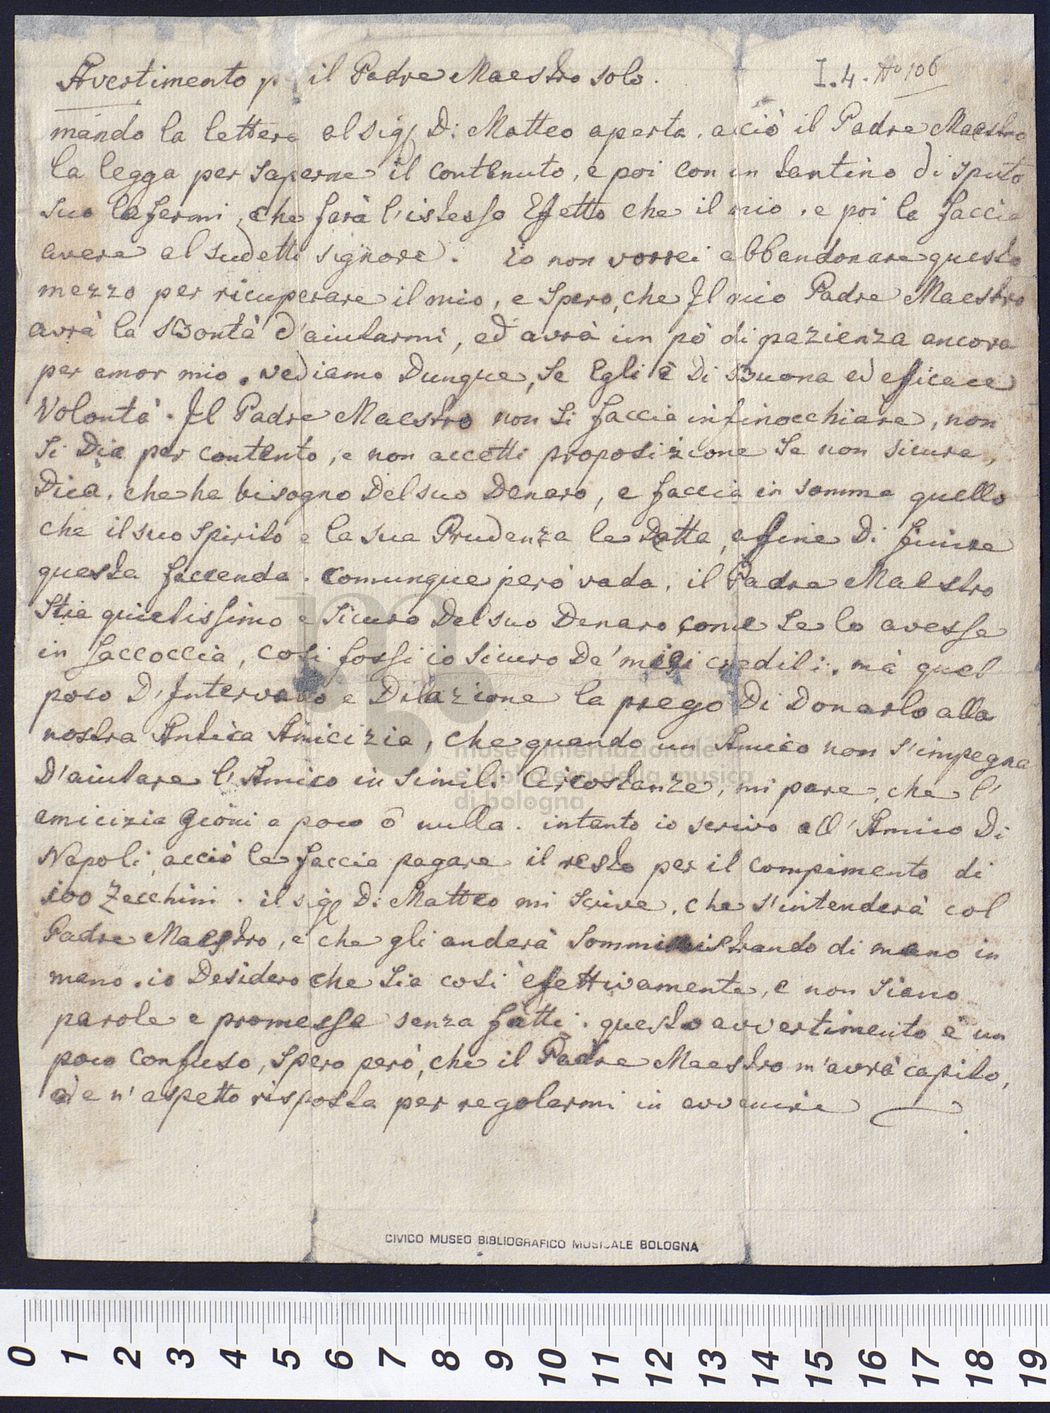 Avertimento p il Padre Maestro solo.
I.4. No 106
mando la lettera al sigr D: Matteo aperta. acciò il Padre Maestro
la legga per saperne il contenuto, e poi con un tantino di sputo
suo la fermi, che farà l'istesso Effetto che il mio. e poi la faccia
avere al sudetti signore. io non vorrei abbandonare questo
mezzo per ricuperare il mio, e spero, che Il mio Padre Maestro
avrà la Bontà d'aiutarmi, ed avrà un pò di pazienza ancora
per amor mio. vediamo Dunque, se Egli è Di Buona ed eficace
Volontà. Il Padre Maestro non si faccia infinocchiare, non
si Dia per contento, e non accetti proposizione se non sicura,
Dica, che ha bisogno Del suo Denaro, e faccia in somma quello
che il suo spirito e la sua Prudenza la Detta, affine Di finire
questa faccenda. comunque però vada, il Padre Maestro
stia quietissimo e sicuro Del suo Denaro come se lo avesse
in saccoccia, così fossi io sicuro De' miei crediti. mà quel
poco D'Intervallo e Dilazione la prego Di Donarlo alla
nostra Antica Amicizia, che quando un Amico non s'impegna
D'aiutare l'Amico in simili Circostanze, mi pare, che l'
amicizia giovi a poco ò nulla. intanto io scrivo all'Amico Di
Napoli, acciò la faccia pagare il resto per il compimento di
100 Zecchini. il sigr D: Matteo mi scrive, che s'intenderà col
Padre Maestro, e che gli anderà somministrando di mano in
mano. io Desidero che sia così effettivamente, e non siano
parole e promesse senza fatti. questo avvertimento è un
poco confuso, spero però, che il Padre Maestro m'avrà capito,
e n'aspetto risposta per regolarmi in avvenire
museo internazionale
e biblioteca della musica
di bologna
CIVICO MUSEO BIBLIOGRAFICO MUSICALE BOLOGNA
0 1 2 3 4 5 6 7 8 9 10 11 12 13 14 15 16 17 18 19